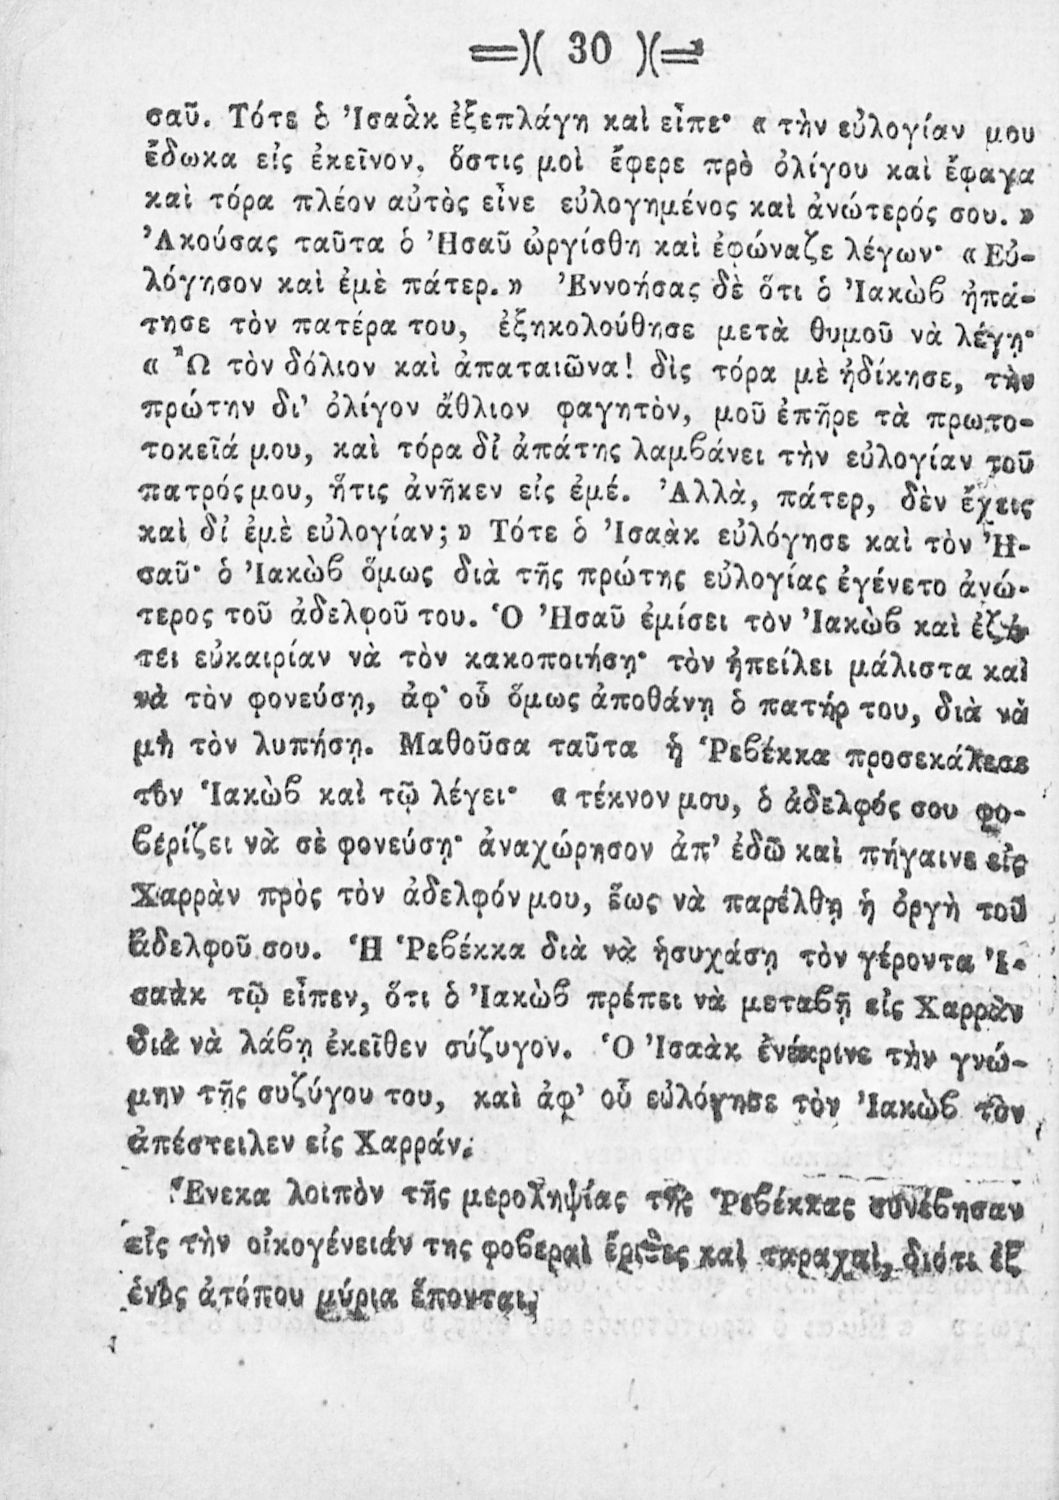 =)( 30 )(=
σαῦ. Τότε ὁ Ἰσαὰκ ἐξεπλάγη καὶ εἶπε· «τὴν εὐλογίαν μου
ἔδωκα εἰς ἐκεῖνον, ὅστις μοὶ ἔφερε πρὸ ὀλίγου καὶ ἔφαγα
καὶ τόρα πλέον αὐτὸς εἶνε εὐλογημένος καὶ ἀνώτερός σου.»
Ἀκούσας ταῦτα ὁ Ἠσαῦ ὠργίσθη καὶ ἐφώναζε λέγων· «Εὐ-
λόγησον καὶ ἐμὲ πάτερ.» Ἐννοήσας δὲ ὅτι ὁ Ἰακὼβ ἠπά-
τησε τὸν πατέρα του, ἐξηκολούθησε μετὰ θυμοῦ νὰ λέγῃ·
«Ὢ τὸν δόλιον καὶ ἀπαταιῶνα! δὶς τόρα μὲ ἠδίκησε, τὴν
πρώτην δι' ὀλίγον ἄθλιον φαγητὸν, μοῦ ἐπῆρε τὰ πρωτο-
τοκεῖά μου, καὶ τόρα δἰ ἀπάτης λαμβάνει τὴν εὐλογίαν τοῦ
πατρός μου, ἥτις ἀνῆκεν εἰς ἐμέ. Ἀλλὰ, πάτερ, δὲν ἔχεις
καὶ δἰ ἐμὲ εὐλογίαν;» Τότε ὁ Ἰσαὰκ εὐλόγησε καὶ τὸν Ἠ-
σαῦ· ὁ Ἰακὼβ ὅμως διὰ τῆς πρώτης εὐλογίας ἐγένετο ἀνώ-
τερος τοῦ ἀδελφοῦ του. Ὁ Ἠσαῦ ἐμίσει τὸν Ἰακὼβ καὶ ἐζή-
τει εὐκαιρίαν νὰ τὸν κακοποιήσῃ· τὸν ἠπείλει μάλιστα καὶ
νὰ τὸν φονεύσῃ, ἀφ' οὗ ὅμως ἀποθάνῃ ὁ πατήρ του, διὰ νὰ
μὴ τὸν λυπήσῃ. Μαθοῦσα ταῦτα ἡ Ῥεβέκκα προσεκάλεσε
τὸν Ἰακὼβ καὶ τῷ λέγει· «τέκνον μου, ὁ ἀδελφός σου φο-
βερίζει νὰ σὲ φονεύσῃ· ἀναχώρησον ἀπ' ἐδῶ καὶ πήγαινε εἰς
Χαρρὰν πρὸς τὸν ἀδελφόν μου, ἕως νὰ παρέλθῃ ἡ ὀργὴ τοῦ
ἀδελφοῦ σου. Ἡ Ῥεβέκκα διὰ νὰ ἡσυχάσῃ τὸν γέροντα Ἰ-
σαὰκ τῷ εἶπεν, ὅτι ὁ Ἰακὼβ πρέπει νὰ μεταβῇ εἰς Χαρρὰν
διὰ νὰ λάβῃ ἐκεῖθεν σύζυγον. Ὁ Ἰσαὰκ ἐνέκρινε τὴν γνώ-
μην τῆς συζύγου του, καὶ ἀφ' οὗ εὐλόγησε τὸν Ἰακὼβ τὸν
ἀπέστειλεν εἰς Χαρράν.
Ἕνεκα λοιπὸν τῆς μεροληψίας τῆς Ῥεβέκκας συνέβησαν
εἰς τὴν οἰκογένειάν της φοβεραὶ ἔριδες καὶ ταραχαὶ, διότι ἐξ
ἑνὸς ἀτόπου μύρια ἕπονται,